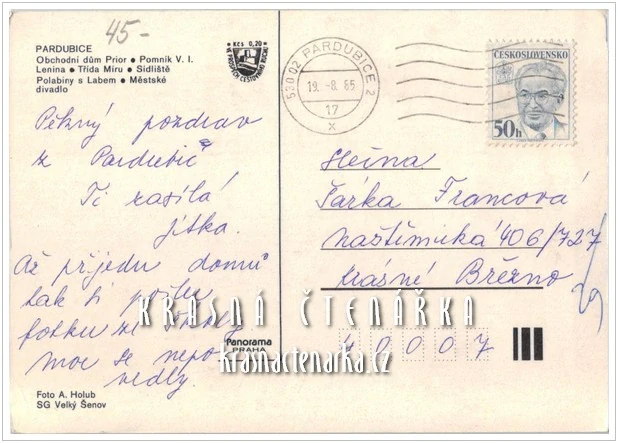 45-
PARDUBICE
Obchodní dům Prior ● Pomník V. I.
Lenina ● Třída Míru ● Sídliště
Polabiny s Labem ● Městské
divadlo
Kčs 0,20
530 02 PARDUBICE 2
19. -8. 85
17
x
ČESKOSLOVENSKO
50h
Pěkný pozdrav
z Pardubic
Ti zasílá
Jitka.
Až přijedu domů
tak ti
fotku
moc se nepo
vedly.
Slečna
Šárka Francová
406/727
Krásné Březno
40007
KRASNÁ ČTENÁŘKA
krasnactenarka.cz
Panorama
PRAHA
Foto A. Holub
SG Velký Šenov